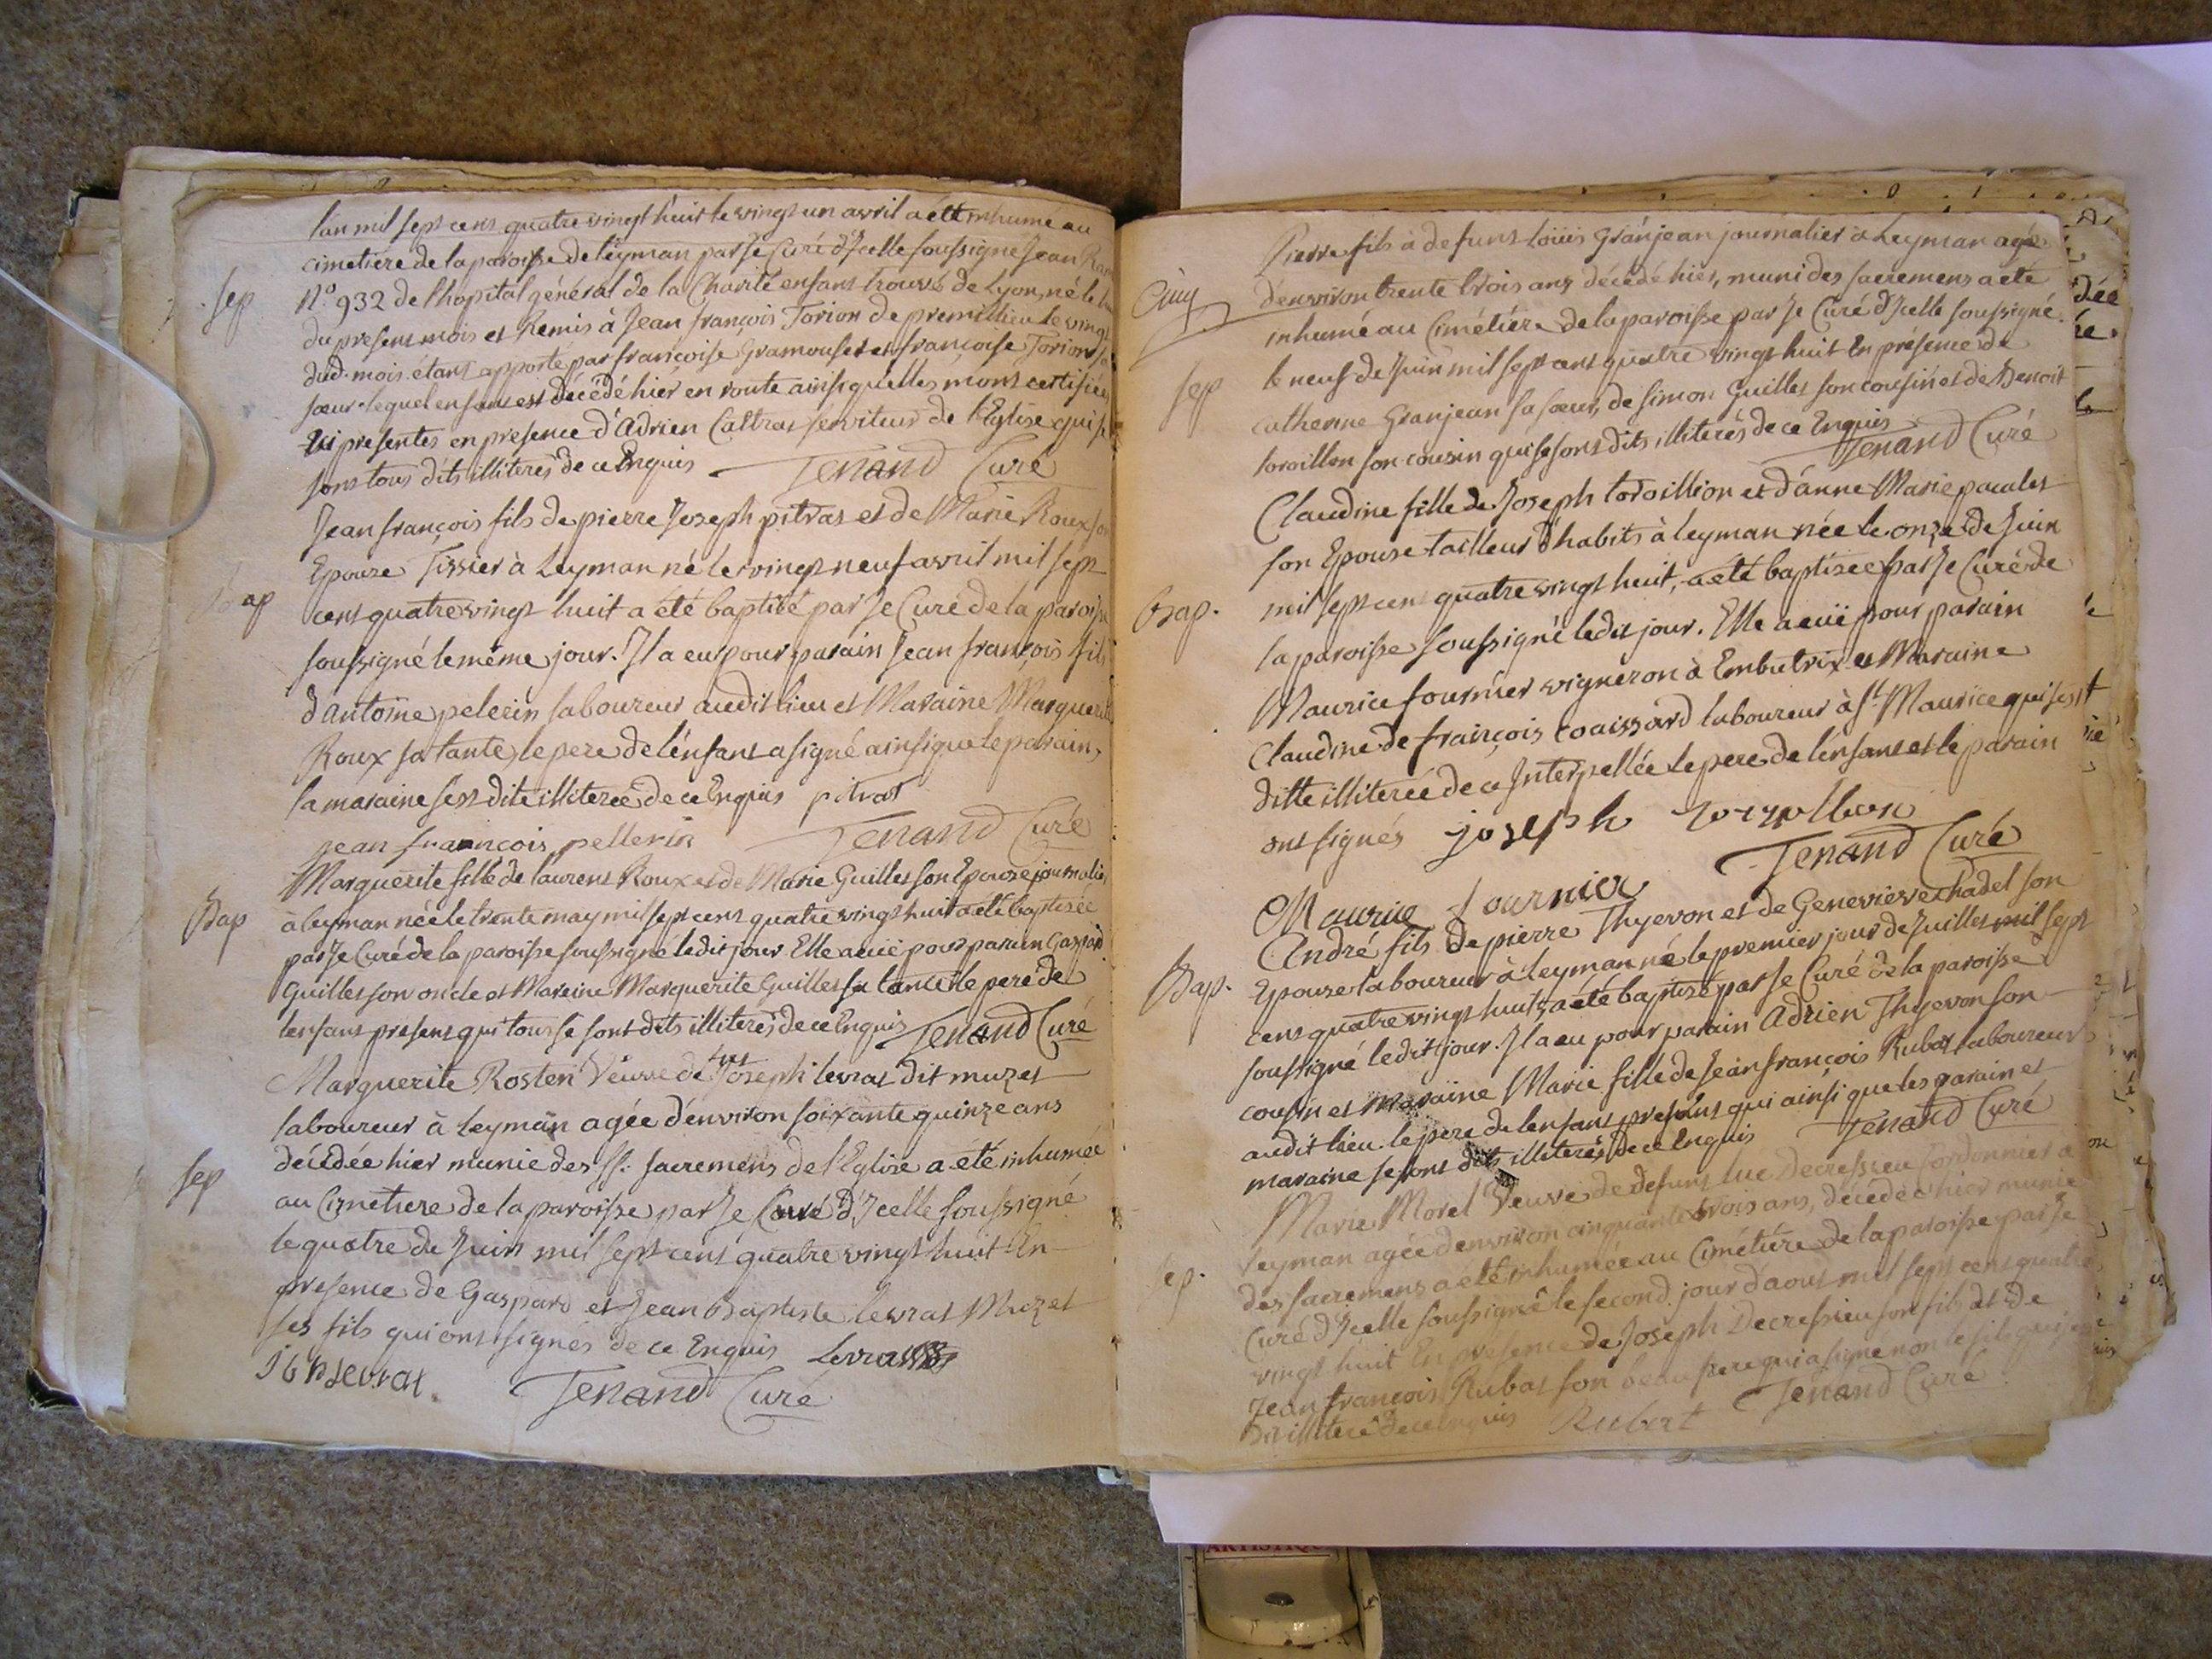 l'an mil sept cens quatre vingt huit le vingt un avril a été inhumé au
cimetiere de la paroisse de leyman par Je Curé d'Jcelle soussigné Jean
Sep
N.o 932 de l'hopital général de la Charité enfant trouvé de Lyon, né le
du present mois et Remis à Jean françois Torion de premillieu le vingt
dud. mois étant apporté par françoise Gramouset et françoise Torion sa
sœur lequel enfant est décédé hier en route ainsi qu'elles m'ont certifié
ici presentes en presence d'Adrien Cattras serviteur de l'Eglise qui se
sont tous dits illiterés de ce Enquis Tenand Curé
Jean françois fils de pierre Joseph pitras et de Marie Roux son
Epouse Tissier à Leyman né le vingt neuf avril mil sept
Bap
cens quatre vingt huit a été baptisé par Je Curé de la paroisse
soussigné le même jour. Il a eu pour parain Jean françois fils
d'antoine pelerin laboureur audit lieu et Maraine Marguerite
Roux sa tante, le pere de l'enfant a signé ainsi que le parain,
la maraine s'est dite illiterée de ce Enquis pitrat
jean franncois pellerin Tenand Curé
Marguerite fille de laurent Roux et de Marie Guillet son Epouse journalier
Bap
à leyman née le trente may mil sept cens quatre vingt huit a été baptisée
par Je Curé de la paroisse soussigné ledit jour Elle a eüe pour parain Gaspard
Guillet son oncle et Maraine Marguerite Guillet sa tante le pere de
lenfant present qui tous se sont dits illiterés de ce Enquis Tenand Curé
Marguerite Rosten Veuve de Joseph levrat dit muzet
laboureur à Leyman agée d'environ soixante quinze ans
Sep
décédée hier munie des SS. sacremens de l'Eglise a été inhumée
au Cimetiere de la paroisse par Je Curé d'Jcelle soussigné
le quatre de Juin mil sept cens quatre vingt huit En
presence de Gaspard et Jean Baptiste levrat Muzet
ses fils qui ont signés de ce Enquis Levrat
J b levrat Tenand Curé
Pierre fils à defunt Loüis Granjean journalier à Leyman agé
Cinq
d'environ trente trois ans décédé hier, muni des sacremens a été
inhumé au Cimétiére de la paroisse par Je Curé d'Jcelle soussigné
Sep
le neuf de Juin mil sept cens quatre vingt huit En présence de
catherine Granjean sa sœur, de simon Guillet son cousin et de Benoit
toroillon son cousin qui se sont dits illiterés de ce Enquis
Tenand Curé
Claudine fille de Joseph toroillion et d'anne Marie pacalet
son Epouse tailleur d'habits à leyman née le onze de Juin
Bap.
mil sept cens quatre vingt huit, a été baptisée par Je Curé de
la paroisse soussigné ledit jour. Elle a eüe pour parain
Maurice fournier vigneron à Embutrix et Maraine
Claudine de françois coaissard laboureur à St. Maurice qui s'est
ditte illiterée de ce Interpellée le pere de l'enfant et le parain
ont signés joseph toroyllion
Tenand Curé
Maurice Fournier
André fils de pierre Thyevon et de Genevieve chadel son
Bap.
Epouse laboureur à Leyman né le premier jour de Juillet mil sept
cens quatre vingt huit, a été baptisé par Je Curé de la paroisse
soussigné ledit jour. Il a eu pour parain Adrien Thyevon son
cousin et maraine Marie fille de Jean françois Rubat laboureur
audit lieu. le pere de lenfant present qui ainsi que les parain et
maraine se sont dits illiterés de ce Enquis Tenand Curé
Marie Morel Veuve de defunt luc Decressieu Cordonnier à
leyman agée d'environ cinquante trois ans, décédée hier munie
Sep.
des sacremens a été inhumée au Cimétiére de la paroisse par Je
Curé d'Jcelle soussigné le second jour d'aout mil sept cens quatre
vingt huit En presence de Joseph Decressieu son fils et de
Jean françois Rubat son beau frere qui a signé non le fils qui s'est
dit illiteré de ce Enquis Rubat Tenand Curé